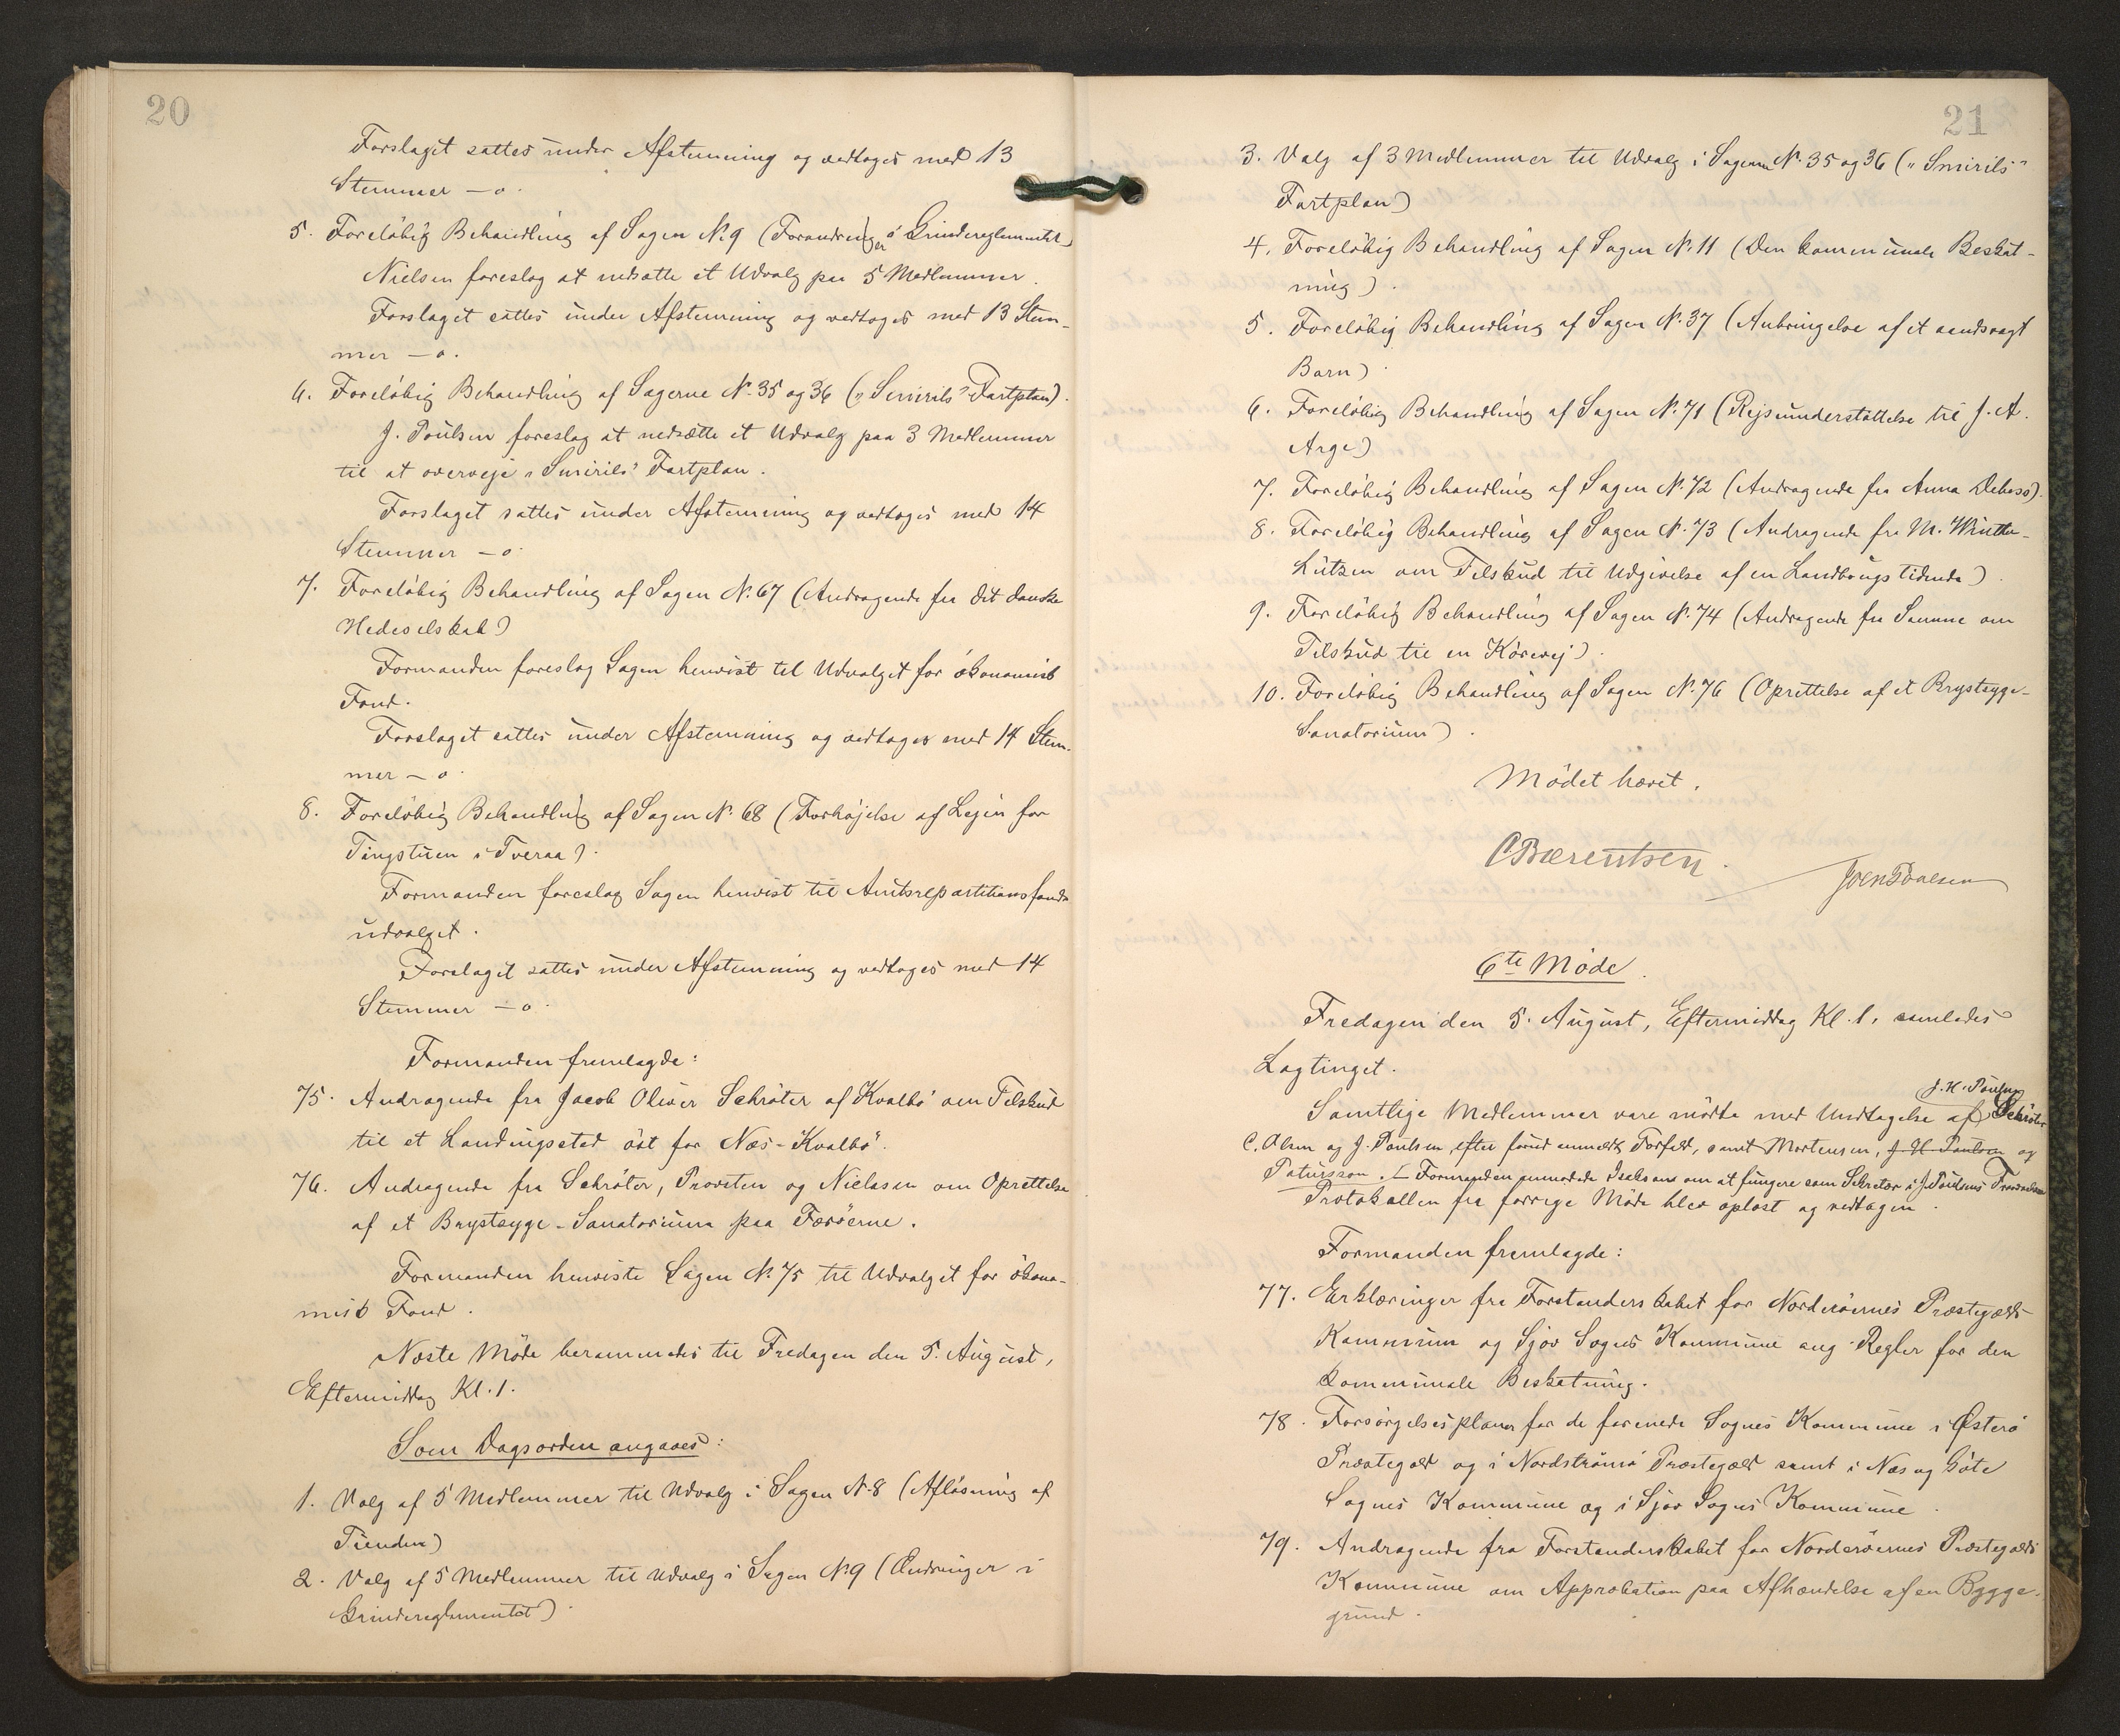 20
Forslaget sattes under Afstemning og vedtoges med 13
Stemmer – 0.
5. Foreløbig Behandling af Sagen No 9 (Forandringer i Grindereglementet)
Nielsen foreslog at nedsætte et Udvalg paa 5 Medlemmer.
Forslaget sattes under Afstemning og vedtoges med 13 Stem-
mer – 0.
6. Foreløbig Behandling af Sagerne No. 35 og 36 („Smirils" Fartplan).
J. Poulsen foreslog at nedsætte et Udvalg paa 3 Medlemmer
til at overveje „Smirils" Fartplan.
Forslaget sattes under Afstemning og vedtoges med 14
Stemmer – 0.
7. Foreløbig Behandling af Sagen No. 67 (Andragende fra det danske
Hedeselskab)
Formanden foreslog Sagen henvist til Udvalget for økonomisk
Fond.
Forslaget sattes under Afstemning og vedtoges med 14 Stem-
mer – 0.
8. Foreløbig Behandling af Sagen No. 68 (Forhøjelse af Lejen for
Tingstuen i Tveraa).
Formanden foreslog Sagen henvist til Amtsrepartitionsfonds
udvalget.
Forslaget sattes under Afstemning og vedtoges med 14
Stemmer – 0.
Formanden fremlagde:
75. Andragende fra Jacob Oliver Schrøter af Kvalbø om Tilskud
til et Landingssted øst for Næs - Kvalbø.
76. Andragende fra Schrøter, Provsten og Nielsen om Oprettelse
af et Brystsyge-Sanatorium paa Færøerne.
Formanden henviste Sagen No. 75 til Udvalget for økono-
misk Fond.
Næste Møde berammedes til Fredagen den 5. August,
Eftermiddag Kl. 1.
Som Dagsorden angaves:
1. Valg af 5 Medlemmer til Udvalg i Sagen No 8 (Afløsning af
Tienden)
2. Valg af 5 Medlemmer til Udvalg i Sagen No 9 (Ændringer i
Grindereglementet).
21
3. Valg af 3 Medlemmer til Udvalg i Sagerne No. 35 og 36 („Smirils"
Fartplan)
4. Foreløbig Behandling af Sagen No. 11 (Den kommunale Beskat-
ning).
5. Foreløbig Behandling af Sagen No. 37 (Anbringelse af et aandssvagt
Barn).
6. Foreløbig Behandling af Sagen No. 71 (Rejseunderstøttelse til J. A.
Arge)
7. Foreløbig Behandling af Sagen No. 72 (Andragende fra Anna Debess).
8. Foreløbig Behandling af Sagen No. 73 (Andragende fra M. Winther-
Lützen om Tilskud til Udgivelse af en Landbrugstidende).
9. Foreløbig Behandling af Sagen No. 74 (Andragende fra Samme om
Tilskud til en Kørevej).
10. Foreløbig Behandling af Sagen No. 76 (Oprettelse af et Brystsyge-
Sanatorium).
Mødet hævet.
C Bærentsen.
Joen Poulsen
6te Møde.
Fredagen den 5. August, Eftermiddag Kl. 1. samledes
Lagtinget.
J. H. Poulsen
Samtlige Medlemmer vare mødte med Undtagelse af Schrøter
C. Olsen og J. Poulsen, efter forud anmeldt Forfald, samt Mortensen, J. H. Poulsen og
Patursson. Formanden anmodede Isaksens om at fungere som Sekretær i J. Poulsens Fraværelse
Protokollen fra forrige Møde blev oplæst og vedtagen.
Formanden fremlagde:
77. Erklæringer fra Forstanderskabet for Norderøernes Præstegælds
Kommune og Sjov Sogns Kommune ang. Regler for den
kommunale Beskatning.
78. Forsørgelsesplaner for de forenede Sognes Kommune i Østerø
Præstegæld og i Nordstrømø Præstegæld samt i Næs og Gøte
Sognes Kommune og i Sjov Sogns Kommune.
79. Andragende fra Forstanderskabet for Norderøernes Præstegælds
Kommune om Approbation paa Afhændelse af en Bygge-
grund.